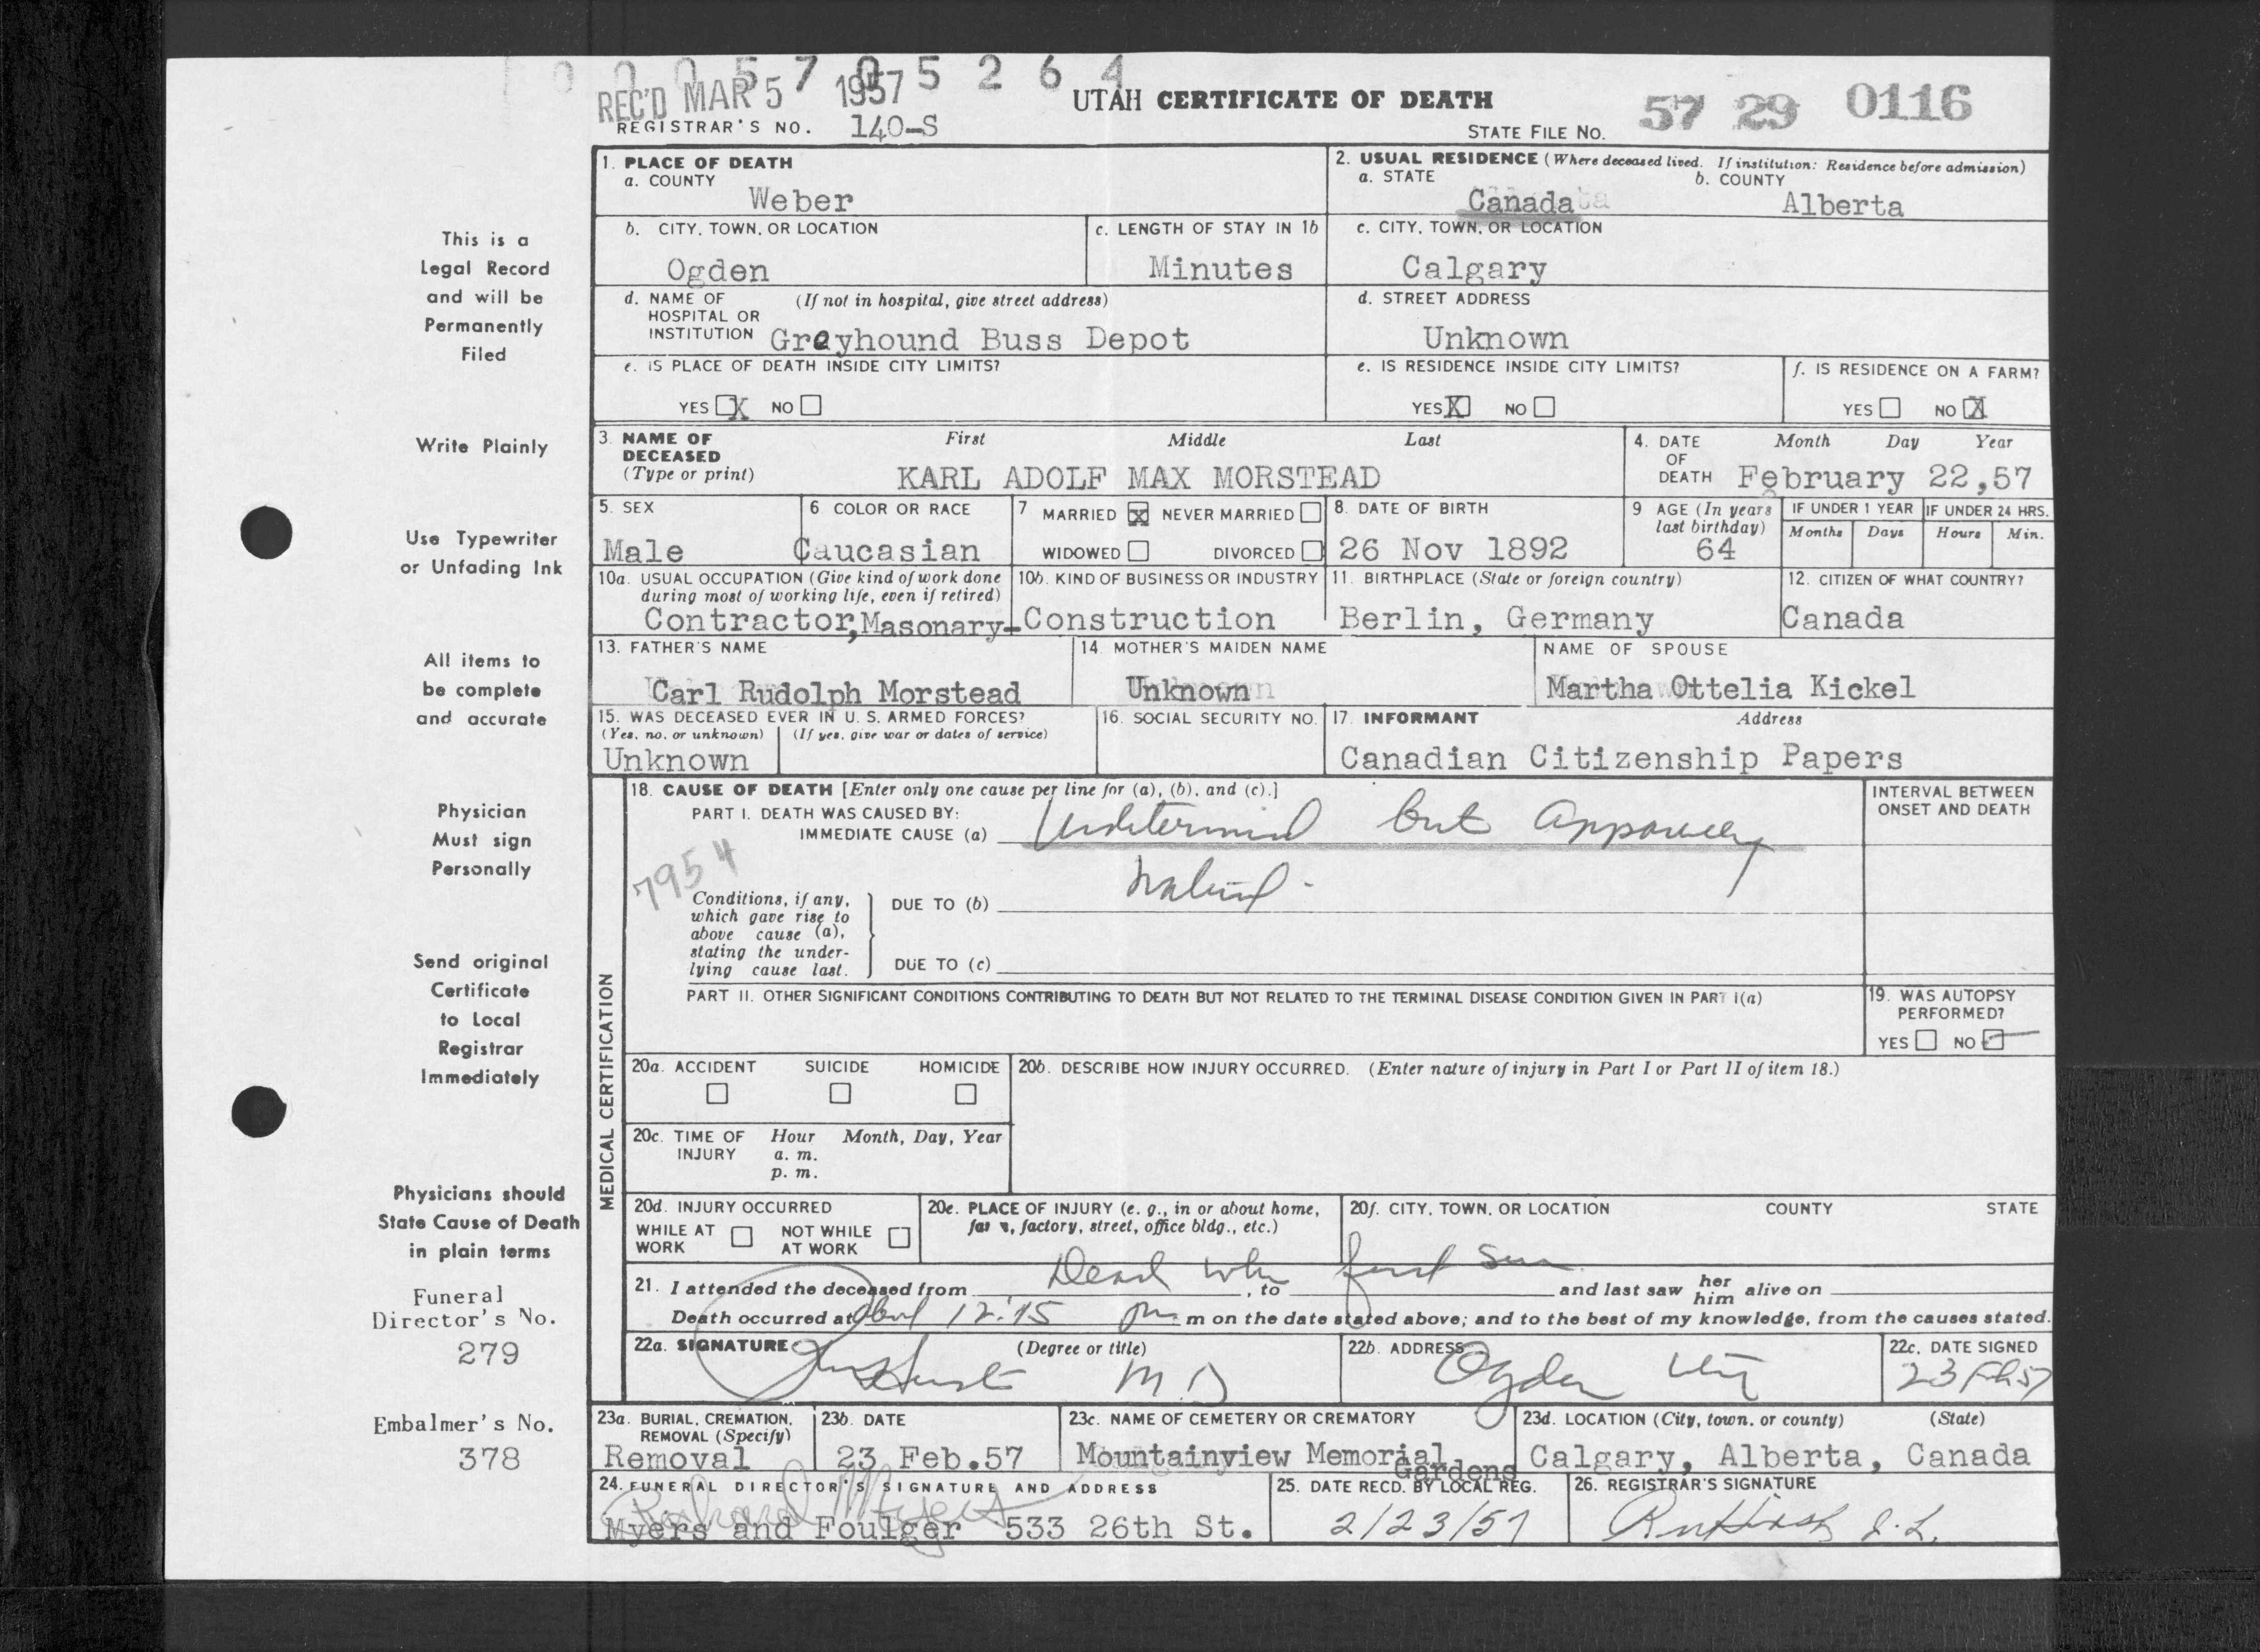 0 0 0 5 7 0 5 2 6 4
REC'D MAR 5 1957
UTAH CERTIFICATE OF DEATH
57 29 0116
REGISTRAR'S NO. 140-S
STATE FILE NO.
This is a
Legal Record
and will be
Permanently
Filed
Write Plainly
Use Typewriter
or Unfading Ink
All items to
be complete
and accurate
Physician
Must sign
Personally
Send original
Certificate
to Local
Registrar
Immediately
Physicians should
State Cause of Death
in plain terms
Funeral
Director's No.
279
Embalmer's No.
378
1. PLACE OF DEATH
a. COUNTY
Weber
2. USUAL RESIDENCE (Where deceased lived. If institution: Residence before admission)
a. STATE
b. COUNTY
Canada
Alberta
b. CITY, TOWN, OR LOCATION
Ogden
c. LENGTH OF STAY IN 1b
Minutes
c. CITY, TOWN, OR LOCATION
Calgary
d. NAME OF (If not in hospital, give street address)
HOSPITAL OR
INSTITUTION Greyhound Buss Depot
d. STREET ADDRESS
Unknown
e. IS PLACE OF DEATH INSIDE CITY LIMITS?
YES X NO
e. IS RESIDENCE INSIDE CITY LIMITS?
YES X NO
f. IS RESIDENCE ON A FARM?
YES NO X
3. NAME OF First Middle Last
DECEASED
(Type or print)
KARL ADOLF MAX MORSTEAD
4. DATE Month Day Year
OF
DEATH February 22,57
5. SEX
Male
6 COLOR OR RACE
Caucasian
7 MARRIED X NEVER MARRIED
WIDOWED DIVORCED
8. DATE OF BIRTH
26 Nov 1892
9 AGE (In years
last birthday)
64
IF UNDER 1 YEAR
Months Days
IF UNDER 24 HRS.
Hours Min.
10a. USUAL OCCUPATION (Give kind of work done
during most of working life, even if retired)
Contractor,Masonary-
10b. KIND OF BUSINESS OR INDUSTRY
Construction
11. BIRTHPLACE (State or foreign country)
Berlin, Germany
12. CITIZEN OF WHAT COUNTRY?
Canada
13. FATHER'S NAME
Carl Rudolph Morstead
14. MOTHER'S MAIDEN NAME
Unknown
NAME OF SPOUSE
Martha Ottelia Kickel
15. WAS DECEASED EVER IN U. S. ARMED FORCES?
(Yes, no, or unknown) (If yes, give war or dates of service)
Unknown
16. SOCIAL SECURITY NO.
17. INFORMANT Address
Canadian Citizenship Papers
MEDICAL CERTIFICATION
18. CAUSE OF DEATH [Enter only one cause per line for (a), (b), and (c).]
PART I. DEATH WAS CAUSED BY:
IMMEDIATE CAUSE (a) Undetermined but apparently
natural.
7954
Conditions, if any,
which gave rise to
above cause (a),
stating the under-
lying cause last.
DUE TO (b)
DUE TO (c)
INTERVAL BETWEEN
ONSET AND DEATH
PART II. OTHER SIGNIFICANT CONDITIONS CONTRIBUTING TO DEATH BUT NOT RELATED TO THE TERMINAL DISEASE CONDITION GIVEN IN PART I(a)
19. WAS AUTOPSY
PERFORMED?
YES NO
20a. ACCIDENT SUICIDE HOMICIDE
20b. DESCRIBE HOW INJURY OCCURRED. (Enter nature of injury in Part I or Part II of item 18.)
20c. TIME OF Hour Month, Day, Year
INJURY a. m.
p. m.
20d. INJURY OCCURRED
WHILE AT NOT WHILE
WORK AT WORK
20e. PLACE OF INJURY (e. g., in or about home,
farm, factory, street, office bldg., etc.)
20f. CITY, TOWN, OR LOCATION COUNTY STATE
Dead when first seen
21. I attended the deceased from , to and last saw her
him alive on
Death occurred at about 12:15 pm m on the date stated above; and to the best of my knowledge, from the causes stated.
22a. SIGNATURE (Degree or title)
M.D
22b. ADDRESS
Ogden Utah
22c. DATE SIGNED
23 Feb 57
23a. BURIAL, CREMATION,
REMOVAL (Specify)
Removal
23b. DATE
23 Feb.57
23c. NAME OF CEMETERY OR CREMATORY
Mountainview Memorial
Gardens
23d. LOCATION (City, town, or county) (State)
Calgary, Alberta, Canada
24. FUNERAL DIRECTOR'S SIGNATURE AND ADDRESS
Richard Myers
Myers and Foulger 533 26th St.
25. DATE RECD. BY LOCAL REG.
2/23/57
26. REGISTRAR'S SIGNATURE